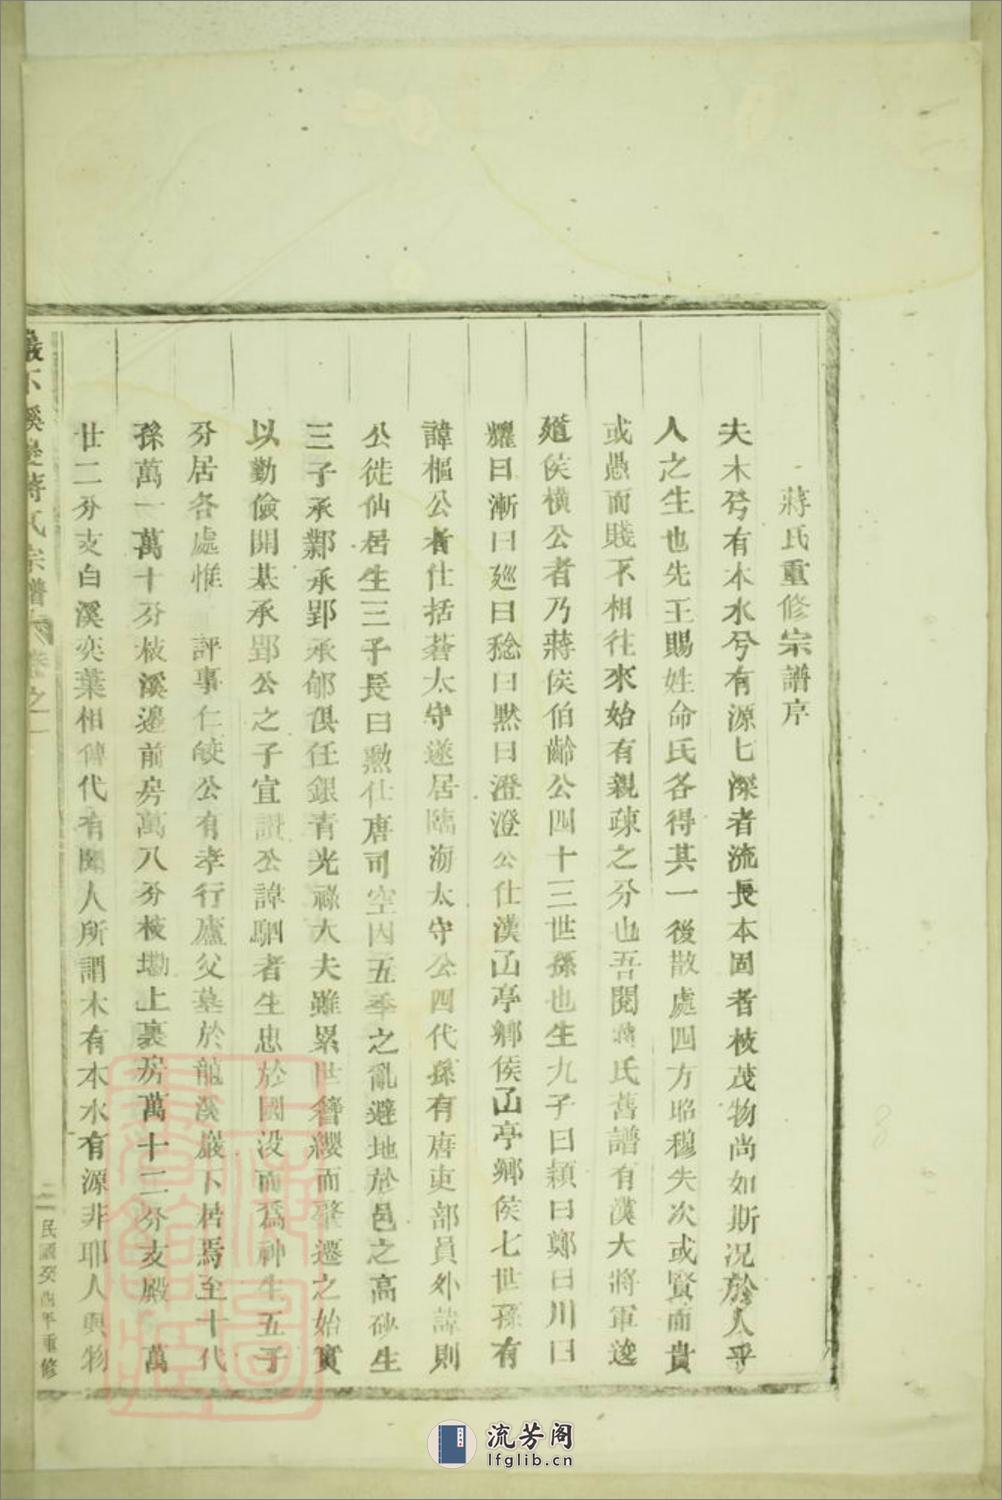 蔣氏重修宗譜序
夫木兮有本水兮有源七深者流長本固者枝茂物尚如斯況於人乎
人之生也先王賜姓命氏各得其一後散處四方昭穆失次或賢而貴
或愚而賤不相往來始有親疎之分也吾閱蔣氏舊譜有漢大將軍逡
遒侯橫公者乃蔣侯伯齡公四十三世孫也生九子曰穎曰鄭曰川曰
耀曰漸曰廵曰稔曰黙曰澄澄公仕漢凾亭鄉侯凾亭鄉侯七世孫有
諱樞公者仕括蒼太守遂居臨海太守公四代孫有唐吏部員外諱則
公徙仙居生三子長曰勲仕唐司空因五季之亂避地於邑之高砂生
三子承鄴承郢承郇俱任銀青光祿大夫雖累世簪纓而肇遷之始實
以勤儉開基承郢公之子宜讚公諱駟者生忠於國没而為神生五子
分居各處惟 評事仁皎公有孝行廬父墓於龍溪巖下居焉至十代
孫萬一萬十分枝溪邊前房萬八分枝墈上裏房萬十二分支殿 萬
廿二分支白溪奕葉相傳代有聞人所謂木有本水有源非耶人與物
巖下溪邊蔣氏宗譜 卷之一
二 民國癸酉年重修
流芳阁
lfglib.cn